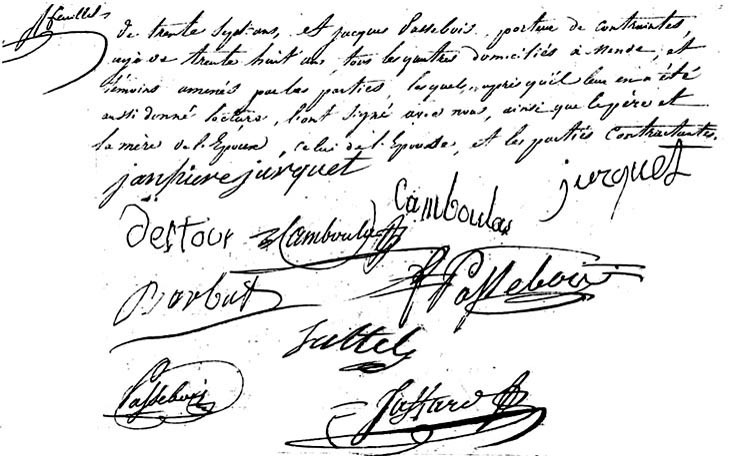 de trente sept ans, et jacques Passebois, porteur de contraintes,
agé de trente huit ans, tous les quatres domiciliés à mende, et
témoins amenés par les parties, lesquels, après qu'il leur en a été
aussi donné lecture, l'ont signé avec nous, ainsi que le père et
la mère de l'Epoux, celui de l'Epouse, et les parties contractantes.
janpierejurquet
jurquet
Camboulas
destour
Camboulas
Barbut
Passebois
Passebois